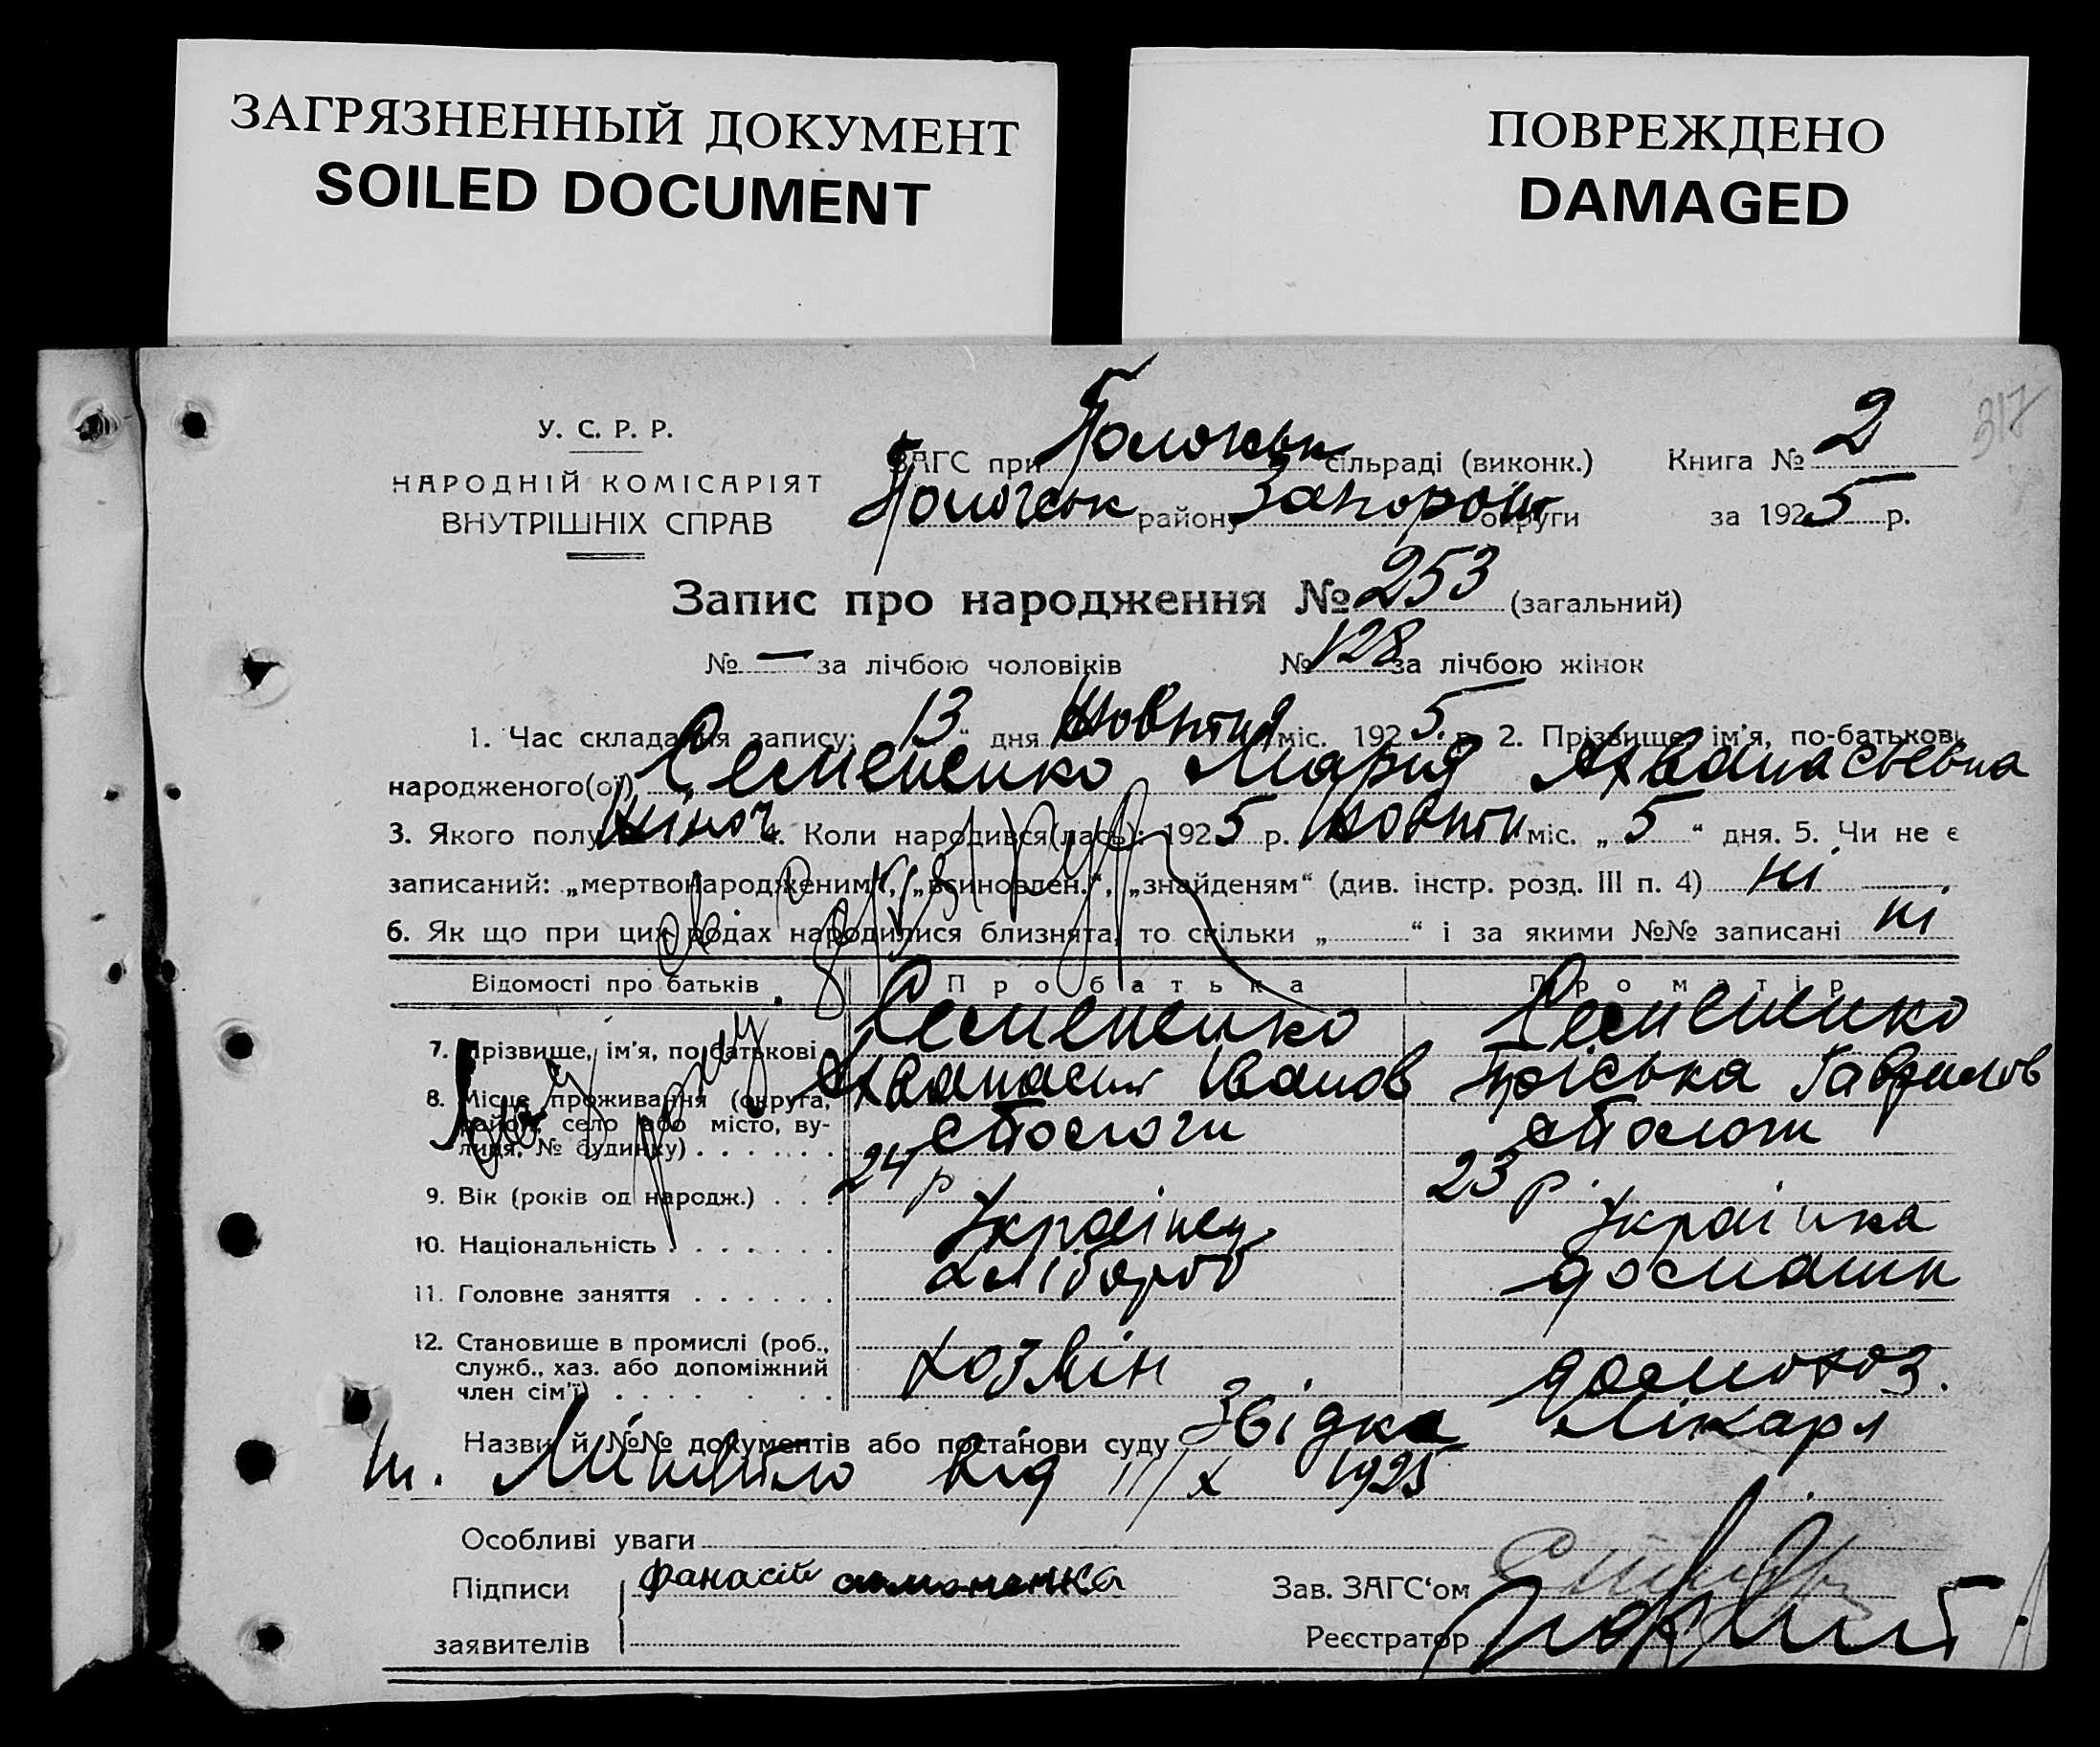 ЗАГРЯЗНЕННЫЙ ДОКУМЕНТ
SOILED DOCUMENT
ПОВРЕЖДЕНО
DAMAGED
317
У. С. Р. Р.
НАРОДНІЙ КОМІСАРІЯТ
ВНУТРІШНІХ СПРАВ
ЗАГС при Пологськ сільраді (виконк.) Книга № 2
Пологськ району Запорож округи за 1925 р.
Запис про народження № 253 (загальний)
№ — за лічбою чоловіків № 128 за лічбою жінок
1. Час складання запису: 13 " дня Жовтня міс. 1925 р. 2. Прізвище, ім'я, по-батькові
народженого(ої) Семененко Мария Афанасьевна
3. Якого полу жіноч 4. Коли народився(лась): 1925 р. жовтн міс. „ 5 " дня. 5. Чи не є
записаний: „мертвонародженим", „всиновлен.", „знайденям" (див. інстр. розд. III п. 4) ні
6. Як що при цих родах народилися близнята, то скільки „ " і за якими №№ записані ні
Відомості про батьків Про батька Про матір
7. Прізвище, ім'я, по-батькові Семененко Афанасий Іванов Семененко Гаврилов
8. Місце проживання (округа, район, село або місто, вулиця, № будинку) ст Пологи ст Пологи
9. Вік (років од народж.) 24 р 23 р.
10. Національність Українец Українка
11. Головне заняття хлібороб домашн
12. Становище в промислі (роб., служб., хаз. або допоміжний член сім'ї) хозяїн домохоз.
Назви й №№ документів або постанови суду Звідка Лікаря
від 11/X 1925
Особливі уваги
Підписи фанасій
заявителів
Зав. ЗАГС'ом
Реєстратор